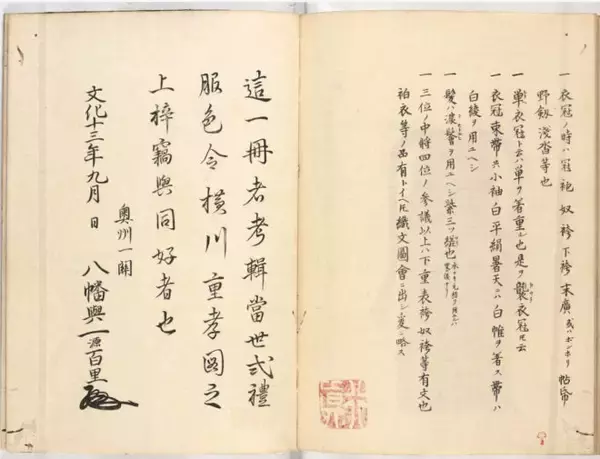 一 衣冠ノ時ハ冠 袍 奴袴 下袴 末廣 或ハボンボリ 帖帋
野釼 浅沓等也
一 單衣冠ト云ハ單ヲ着重シ也是ヲ襲衣冠トモ云
一 衣冠束帶共小袖白平絹暑天ニハ白帷ヲ着ス帶ハ
白綾ヲ用ユヘシ
一 髪ハ濃鬢ヲ用ユヘシ紫三ツ組也
一 三位ノ中將四位ノ参議以上ハ下重表袴奴袴等有文也
袙衣等ノ品有トイヘトモ織文圖會ニ出シヽ故ニ略ス
這一冊者考輯當世弐禮
服色令横川重孝圖之
上梓竊與同好者也
文化十三年九月 日
奥州一關
八幡與一源百里